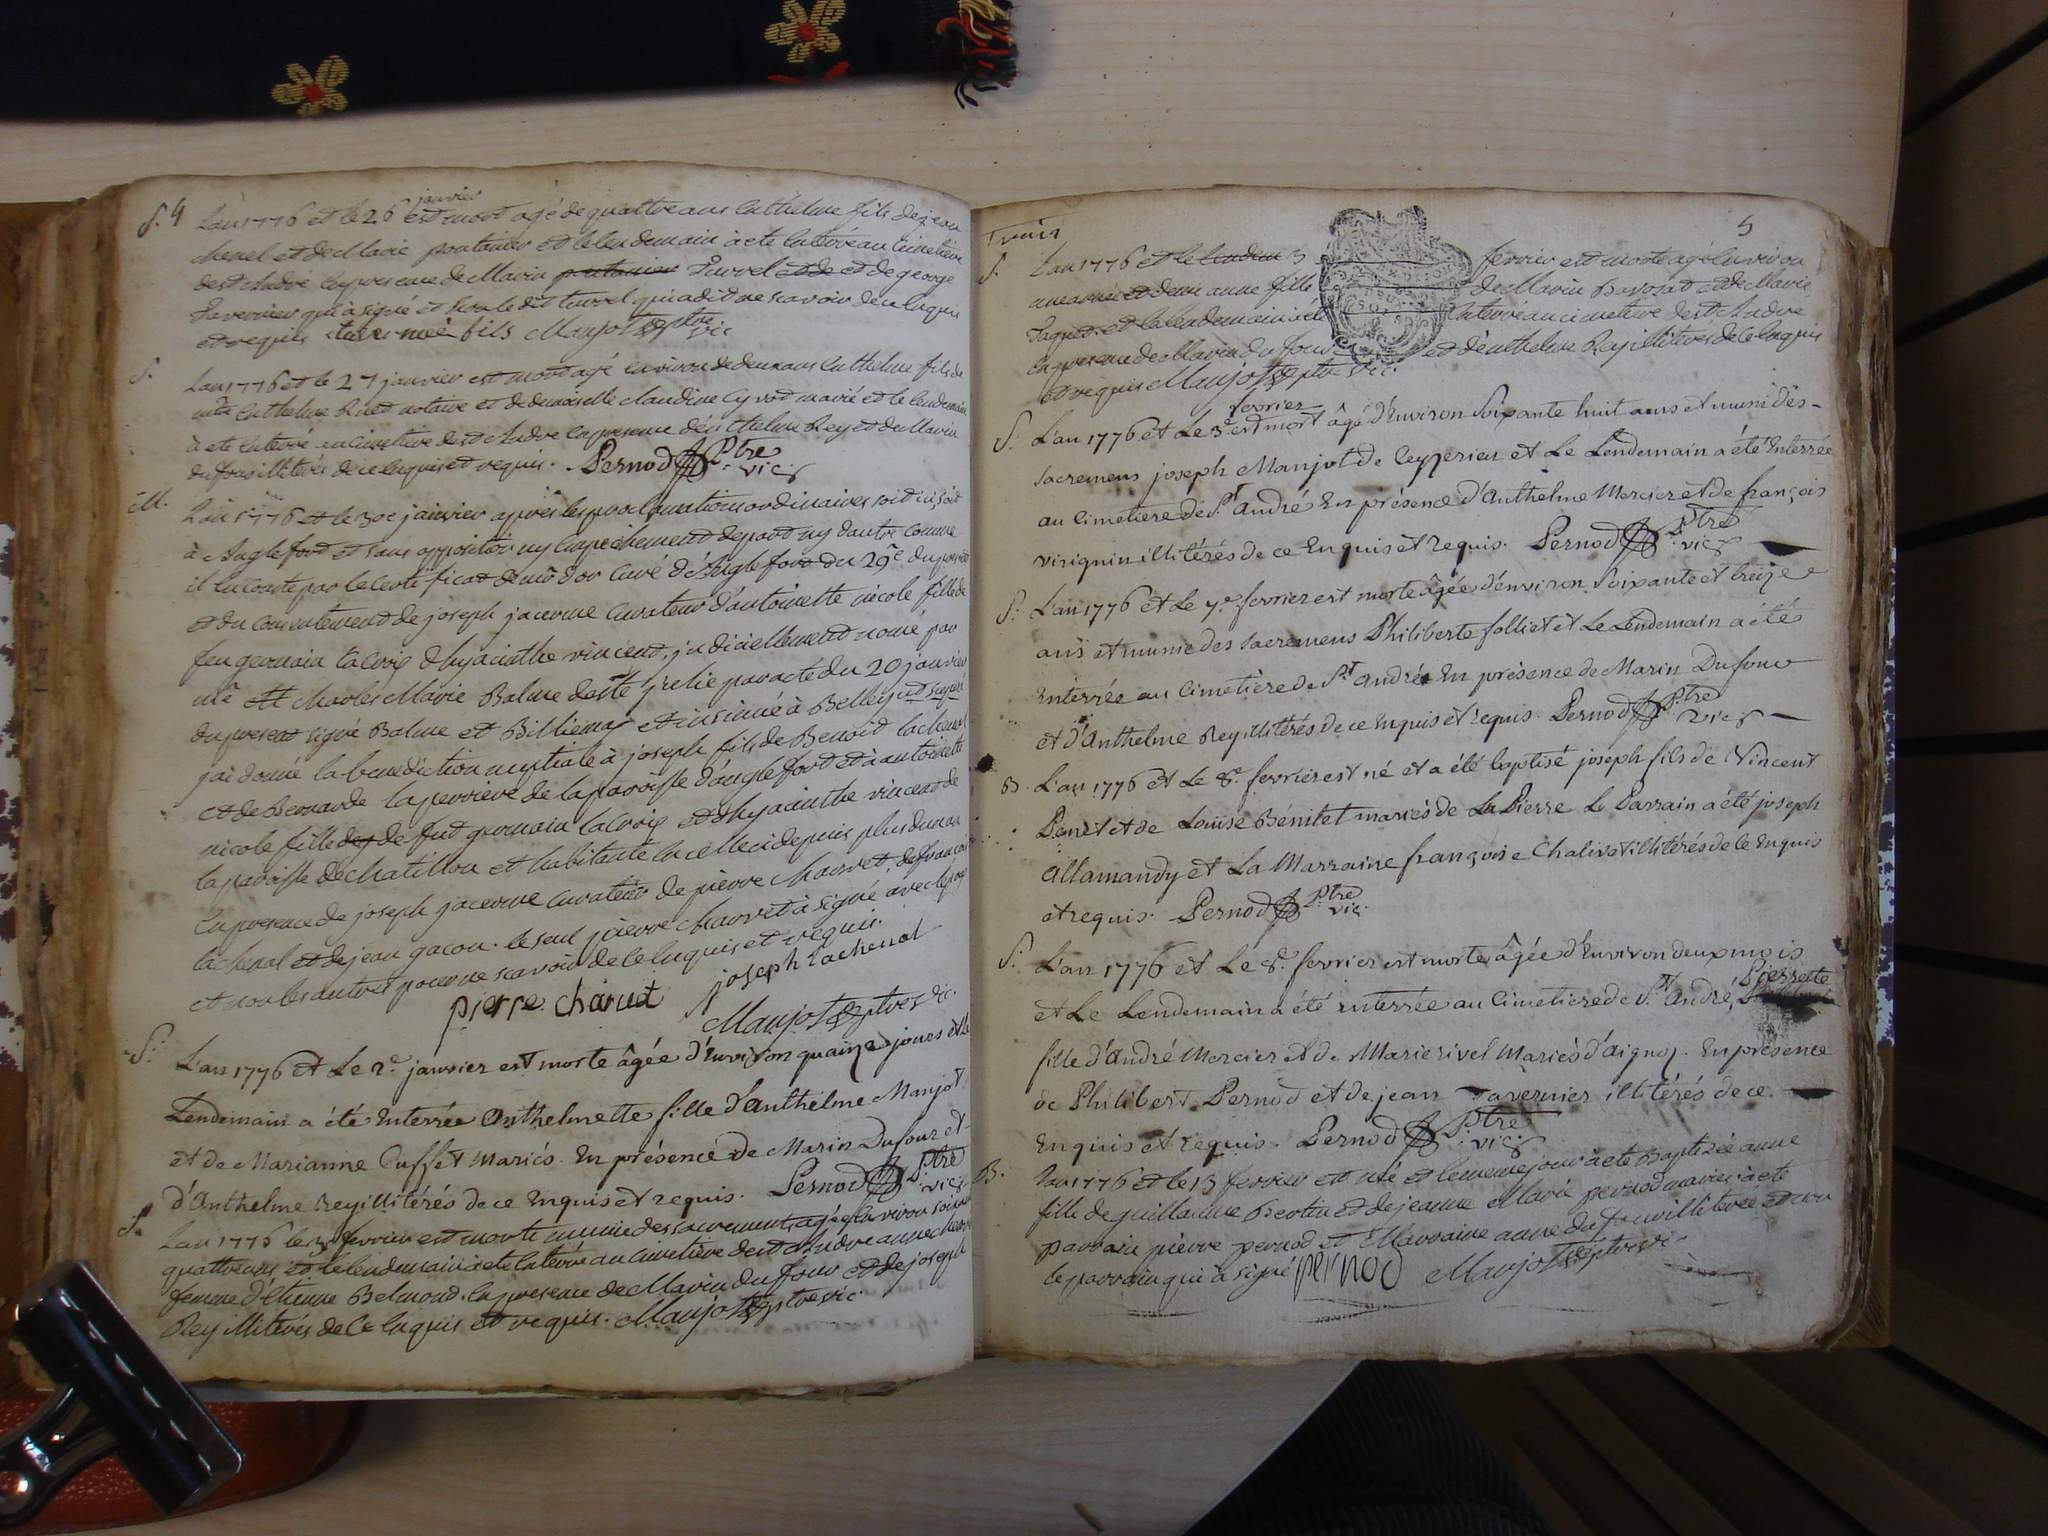 S. 4 L'an 1776 et le 26 janvier est mort agé de quattre ans Anthelme fils de jean
chenel et de Marie pontanier et le lendemain a ete Enterré au cimetière
de st André En presence de Marin Turrel et de george
Tavernier qui à signé et non le dit turrel qui a dit ne scavoir de ce Enquis
et requis tavernié fils Manjot ptre vic
S. L'an 1776 et le 27 janvier est mort agé environ de deux ans Anthelme fils de
mtre Anthelme notaire et de demoiselle Claudine Cyvoct marié et le lendemain
à eté Enterré au cimetière de st Andre En presence d'Anthelme Rey et de Marin
dufour illiterés de ce Enquis et requis. Pernod Ptre vic.
M. L'an 1776 et le 30e janvier après les proclamations ordinaires soit ici, soit
à Anglefort et sans opposition ny Empechement de part ny d'autre comme
il En conste par le certificat de mr dor Curé d'Anglefort du 29e du present
et du consentement de joseph jacerme Curateur d'antoinette nicole fille de
feu germain Lacroix d'hyacinthe vincent, judiciellement nomé par
mr Charles Marie Balme de Ste julie par acte du 20 janvier
du present signé Balme et Billiemaz et insinué à Belley
jai donné la benediction nuptiale à joseph fils de Benoit lachenal
et de Bernarde laperriere de la paroisse d'anglefort et à antoinette
nicole fille de fut germain Lacroix et d'hyacinthe vincent de
la paroisse de Chatillon et habitante En celle ci depuis plus d'un an
En presence de joseph jacerme Curateur de pierre Charvet, de francois
lachenal et de jean gacon. le seul pierre Charvet à signé avec lepoux
et non les autres pour ne scavoir de ce Enquis et requis.
pierre charvet joseph Lachenal
Manjot ptre vic.
S. L'an 1776 et Le 2e. janvier est morte âgée d'Environ quainze joues et le
Lendemain a été Enterrée Anthelmette fille d'Anthelme Manjot
et de Marianne Cuffet mariés. En présence de Marin Dufour et
d'Anthelme Rey illitérés de ce Enquis et requis. Pernod Ptre vic.
S. L'an 1776 le 3 février est morte munie des sacrements agée Environ soixante
quattre ans et le lendemain a ete Enterré au cimetière de st Andre anne
femme d'étienne Belmond. En presence de Marin dufour et de joseph
Rey illiterés de ce Enquis et requis. Manjot ptre vic.
5
S. L'an 1776 et le 3 fevrier est morte agé Environ
une année et demi anne fille de Marin Bavosat et de Marie
et le lendemain a été Enterré au cimetière de st Andre
En presence de Marin du four et d'Anthelme Rey illiterés de ce Enquis
et requis Manjot ptre vic.
S. L'an 1776 et Le 3e fevrier est mort âgé d'Environ Soixante huit ans et muni des
sacremens joseph Manjot de Ceyzerieu et Le Lendemain a été Enterrée
au Cimetiere de St André En présence d'Anthelme Mercier et de françois
virignin illitérés de ce Enquis et requis. Pernod Ptre vic.
S. L'an 1776 et Le 7e. fevrier est morte âgée d'environ Soixante et treize
ans et munie des sacremens Philiberte folliet et Le Lendemain a été
Enterrée au Cimetière de St André En présence de Marin Dufour
et d'Anthelme Rey illitérés de ce Enquis et requis. Pernod Ptre vic.
B. L'an 1776 et Le 8e. fevrier est né et a été baptisé joseph fils de Vincent
Penet et de Louïse Bénitet mariés de La Pierre Le Parrain a été joseph
allamandy et La Marraine françoise Chalivet illitérés de ce Enquis
et requis. Pernod Ptre vic.
S. L'an 1776 et Le 8e. fevrier est morte âgée d'Environ deux mois
et Le Lendemain a été enterrée au Cimetiere de St André, Pierrette
fille d'André Mercier et de Marie rivel Mariés d'aignoz. En présence
de Philibert Pernod et de jean Tavernier illitérés de ce
Enquis et requis. Pernod Ptre vic.
B. L'an 1776 et le 13 fevrier est née et le meme jour à ete Baptisée anne
fille de guillaume Bertin et de jeanne Marie pernod mariés à ete
parrain pierre pernod et Marraine anne dufour illiterée et non
le parrain qui à signé pernod Manjot ptre vic